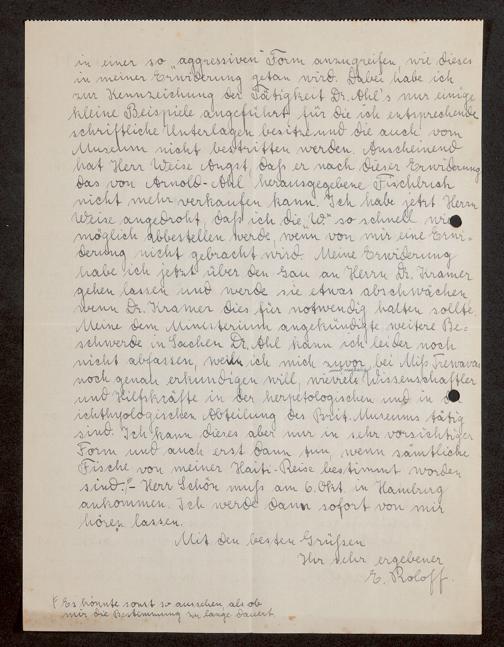 in einer so „aggressiven" Form anzugreifen, wie dieses
in meiner Erwiderung getan wird. Dabei habe ich
zur Kennzeichnung der Tätigkeit Dr. Ahl's nur einige
kleine Beispiele angeführt für die ich entsprechende
schriftliche Unterlagen besitze und die auch vom
Museum nicht bestritten werden. Anscheinend
hat Herr Weise Angst, daß er nach dieser Erwiderung
das von Arnold-Ahl herausgegebene Fischbuch
nicht mehr verkaufen kann. Ich habe jetzt Herrn
Weise angedroht, daß ich die „W." so schnell wie
möglich abbestellen werde, wenn von mir eine Erwi-
derung nicht gebracht wird. Meine Erwiderung
habe ich jetzt über den Gau an Herrn Dr. Kramer
gehen lassen und werde sie etwas abschwächen
wenn Dr. Kramer dies für notwendig halten sollte.
Meine dem Ministerium angekündigte weitere Be-
schwerde in Sachen Dr. Ahl kann ich leider noch
nicht abfassen, weil ich mich zuvor bei Miß Trewavas
noch genau erkundigen will, wieviele Wissenschaftler
und Hilfskräfte in der herpetologischen und in d
ichthyologischen Abteilung des Brit. Museums tätig
sind. Ich kann dieses aber nur in sehr vorsichtiger
Form und auch erst dann tun, wenn sämtliche
Fische von meiner Haiti-Reise bestimmt worden
sind. Herr Schön muß am 6. Okt. in Hamburg
ankommen. Ich werde dann sofort von mir
hören lassen.
Mit den besten Grüßen
Ihr sehr ergebener
E. Roloff.
Es könnte sonst so aussehen, als ob
mir die Bestimmung zu lange dauert.